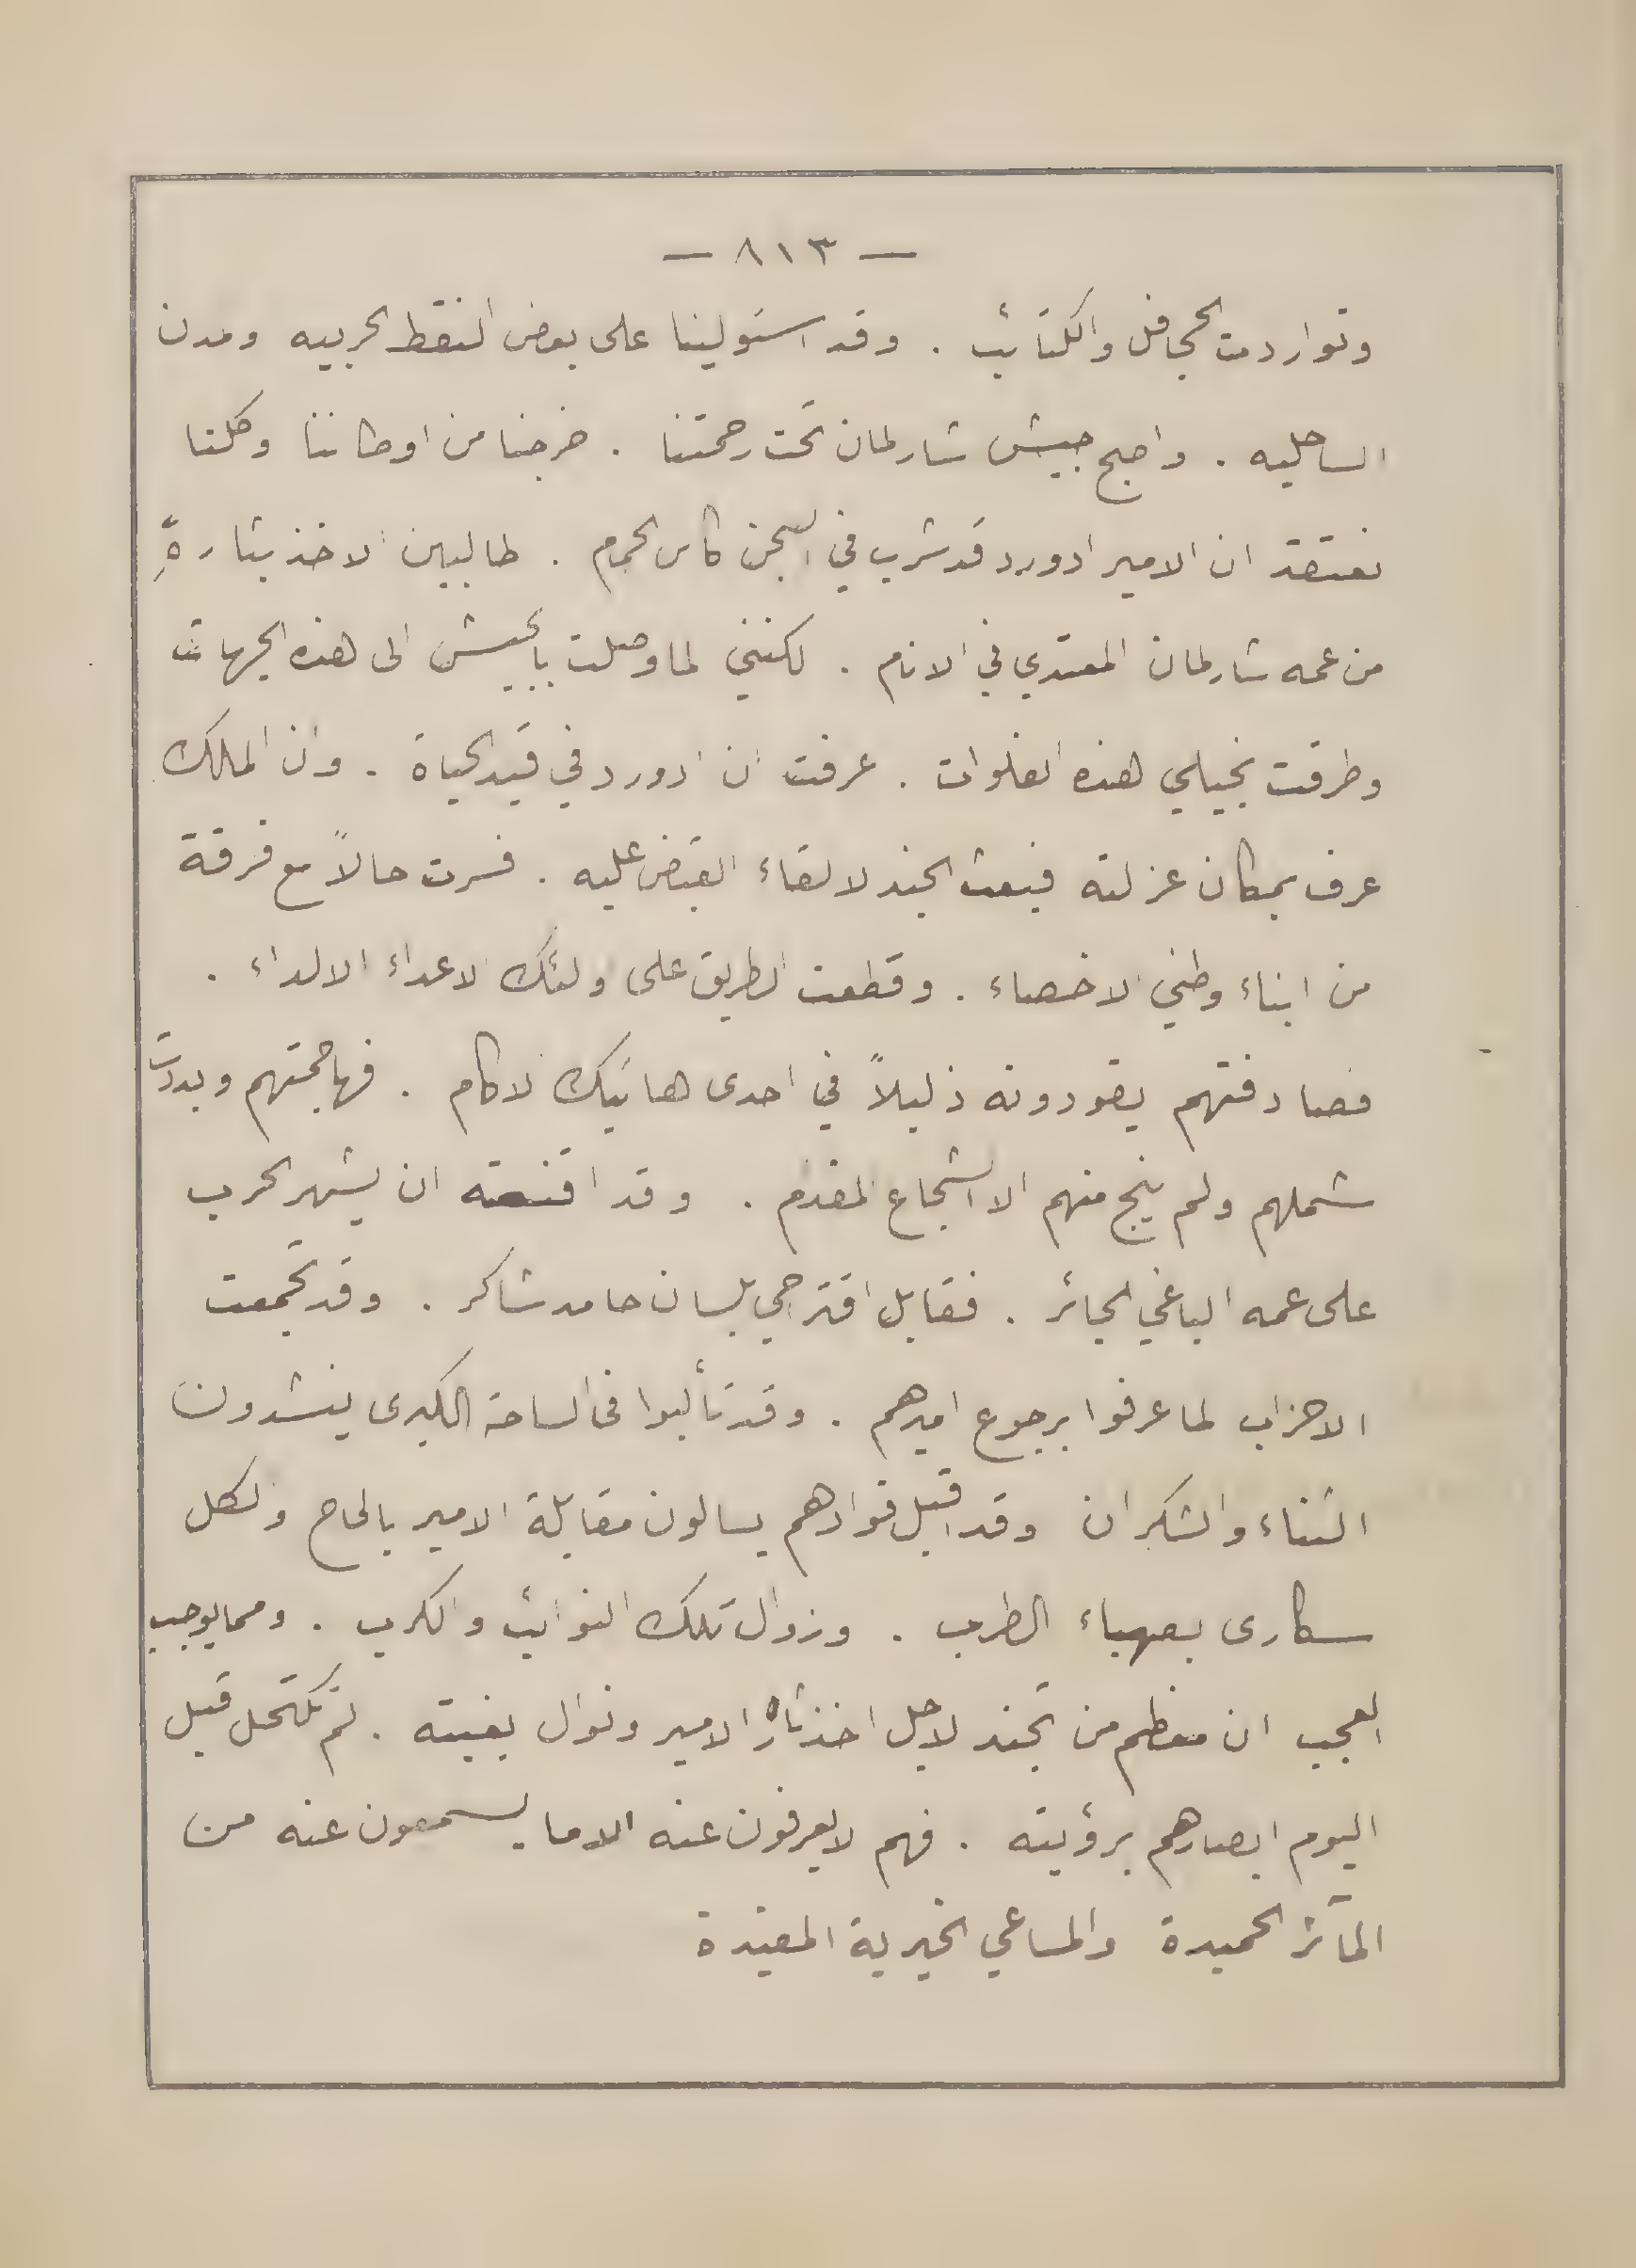 — ٨١٣ —
وتواردت الجحافل والكتائب . وقد استولينا على بعض النقط الحربيه ومدن
الساحليه . واصبح جيش شارلمان تحت رحمتنا . خرجنا من اوطاننا وكلنا
نعتقد ان الامير ادورد قد شرب في السجن كاس الحمام . طالبين الاخذ بثارهِ
من عمه شارلمان المعتدي في الانام . لكنني لما وصلت بالجيش الى هذه الجهات
وطرقت بخيلي هذه الفلوات . عرفت ان ادورد في قيد الحياة . وان الملك
عرف بمكان عزلته فبعث الجند لالقاء القبض عليه . فسرت حالاً مع فرقة
من ابناء وطني الاخصاء . وقطعت الطريق على اولئك الاعداء الالداء .
فصادفتهم يقودونه ذليلاً في احدى هاتيك الاكام . فهاجمتهم وبددت
شملهم ولم ينج منهم الا الشجاع المقدم . وقد اقنعته ان يشهر الحرب
على عمه الباغي الجائر . فقابل اقتراحي بلسان حامد شاكر . وقد تجمعت
الاحزاب لما عرفوا برجوع اميرهم . وقد تألبوا في الساحة الكبرى ينشدون
الثناء والشكران وقد اقبل قوادهم يسالون مقابلة الامير بالحاح والكل
سكارى بصهباء الطرب . وزوال تلك النوائب والكرب . ومما يوجب
العجب ان معظم من تجند لاجل اخذ ثار الامير ونوال بغيته . لم تكتحل قبل
اليوم ابصارهم برؤيته . فهم لا يعرفون عنه الا ما يسمعون عنه من
المآثر الحميدة والمساعي الخيرية المفيدة